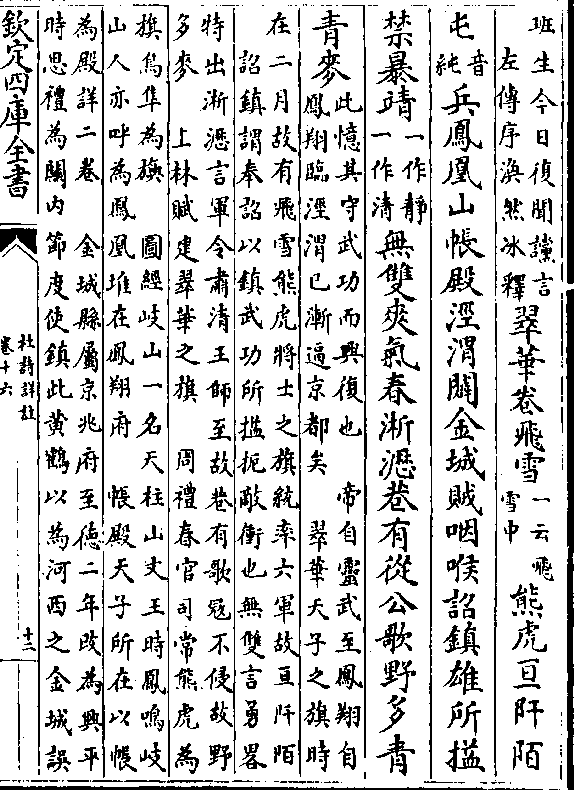 班生今日復聞讜言
左傳序渙然冰釋
翠華卷飛雪
一云飛
雪中
熊虎亘阡陌
屯
音
純
兵鳳凰山帳殿涇渭闢金城賊咽喉詔鎮雄所搤
禁暴靖
一作靜
一作清
無雙爽氣春淅瀝巷有從公歌野多青
青麥
此憶其守武功而興復也　帝自靈武至鳳翔自
鳳翔臨涇渭已漸逼京都矣　翠華天子之旗時
在二月故有飛雪熊虎將士之旗統率六軍故亘阡陌
詔鎮謂奉詔以鎮武功所搤扼敵衝也無雙言勇畧
特出淅瀝言軍令肅清王師至故巷有歌冦不侵故野
多麥　上林賦建翠華之旗　周禮春官司常熊虎為
旗鳥隼為旟　圖經岐山一名天柱山文王時鳳鳴岐
山人亦呼為鳳凰堆在鳳翔府　帳殿天子所在以帳
為殿詳二卷　金城縣屬京兆府至德二年改為興平
時思禮為關内節度使鎮此黄鶴以為河西之金城誤
欽定四庫全書
杜詩詳註
卷十六
十三